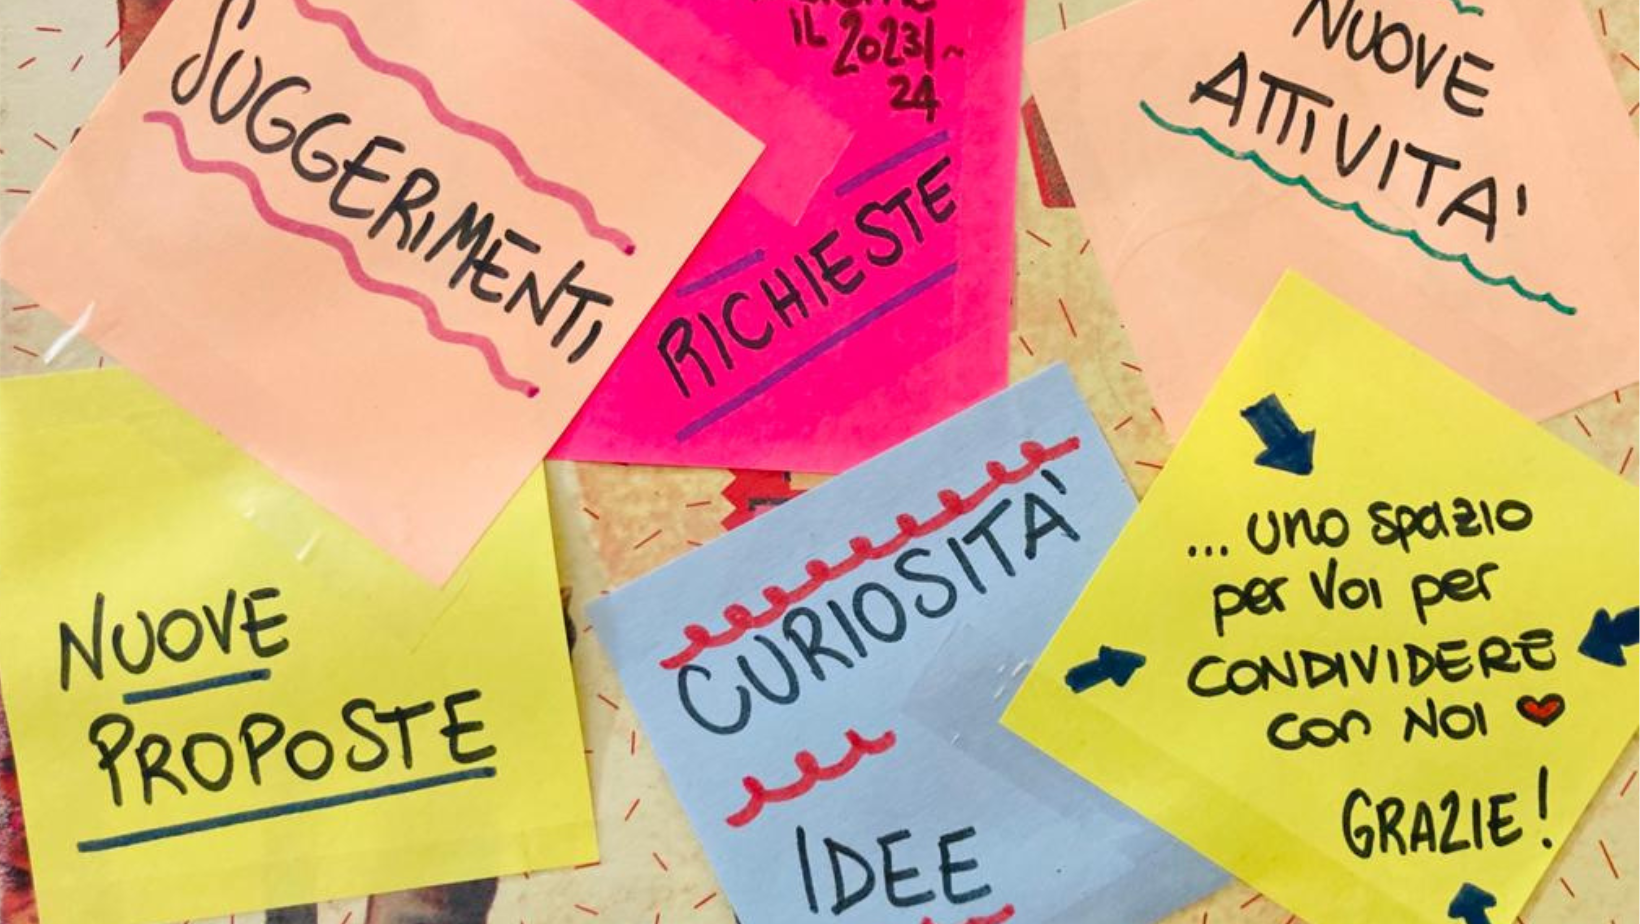 SUGGERIMENTI
IL 2023/~
24
RICHIESTE
NUOVE
ATTIVITA'
NUOVE
PROPOSTE
CURIOSITA'
IDEE
... uno spazio
per Voi per
CONDIVIDERE
con NOI
GRAZIE!